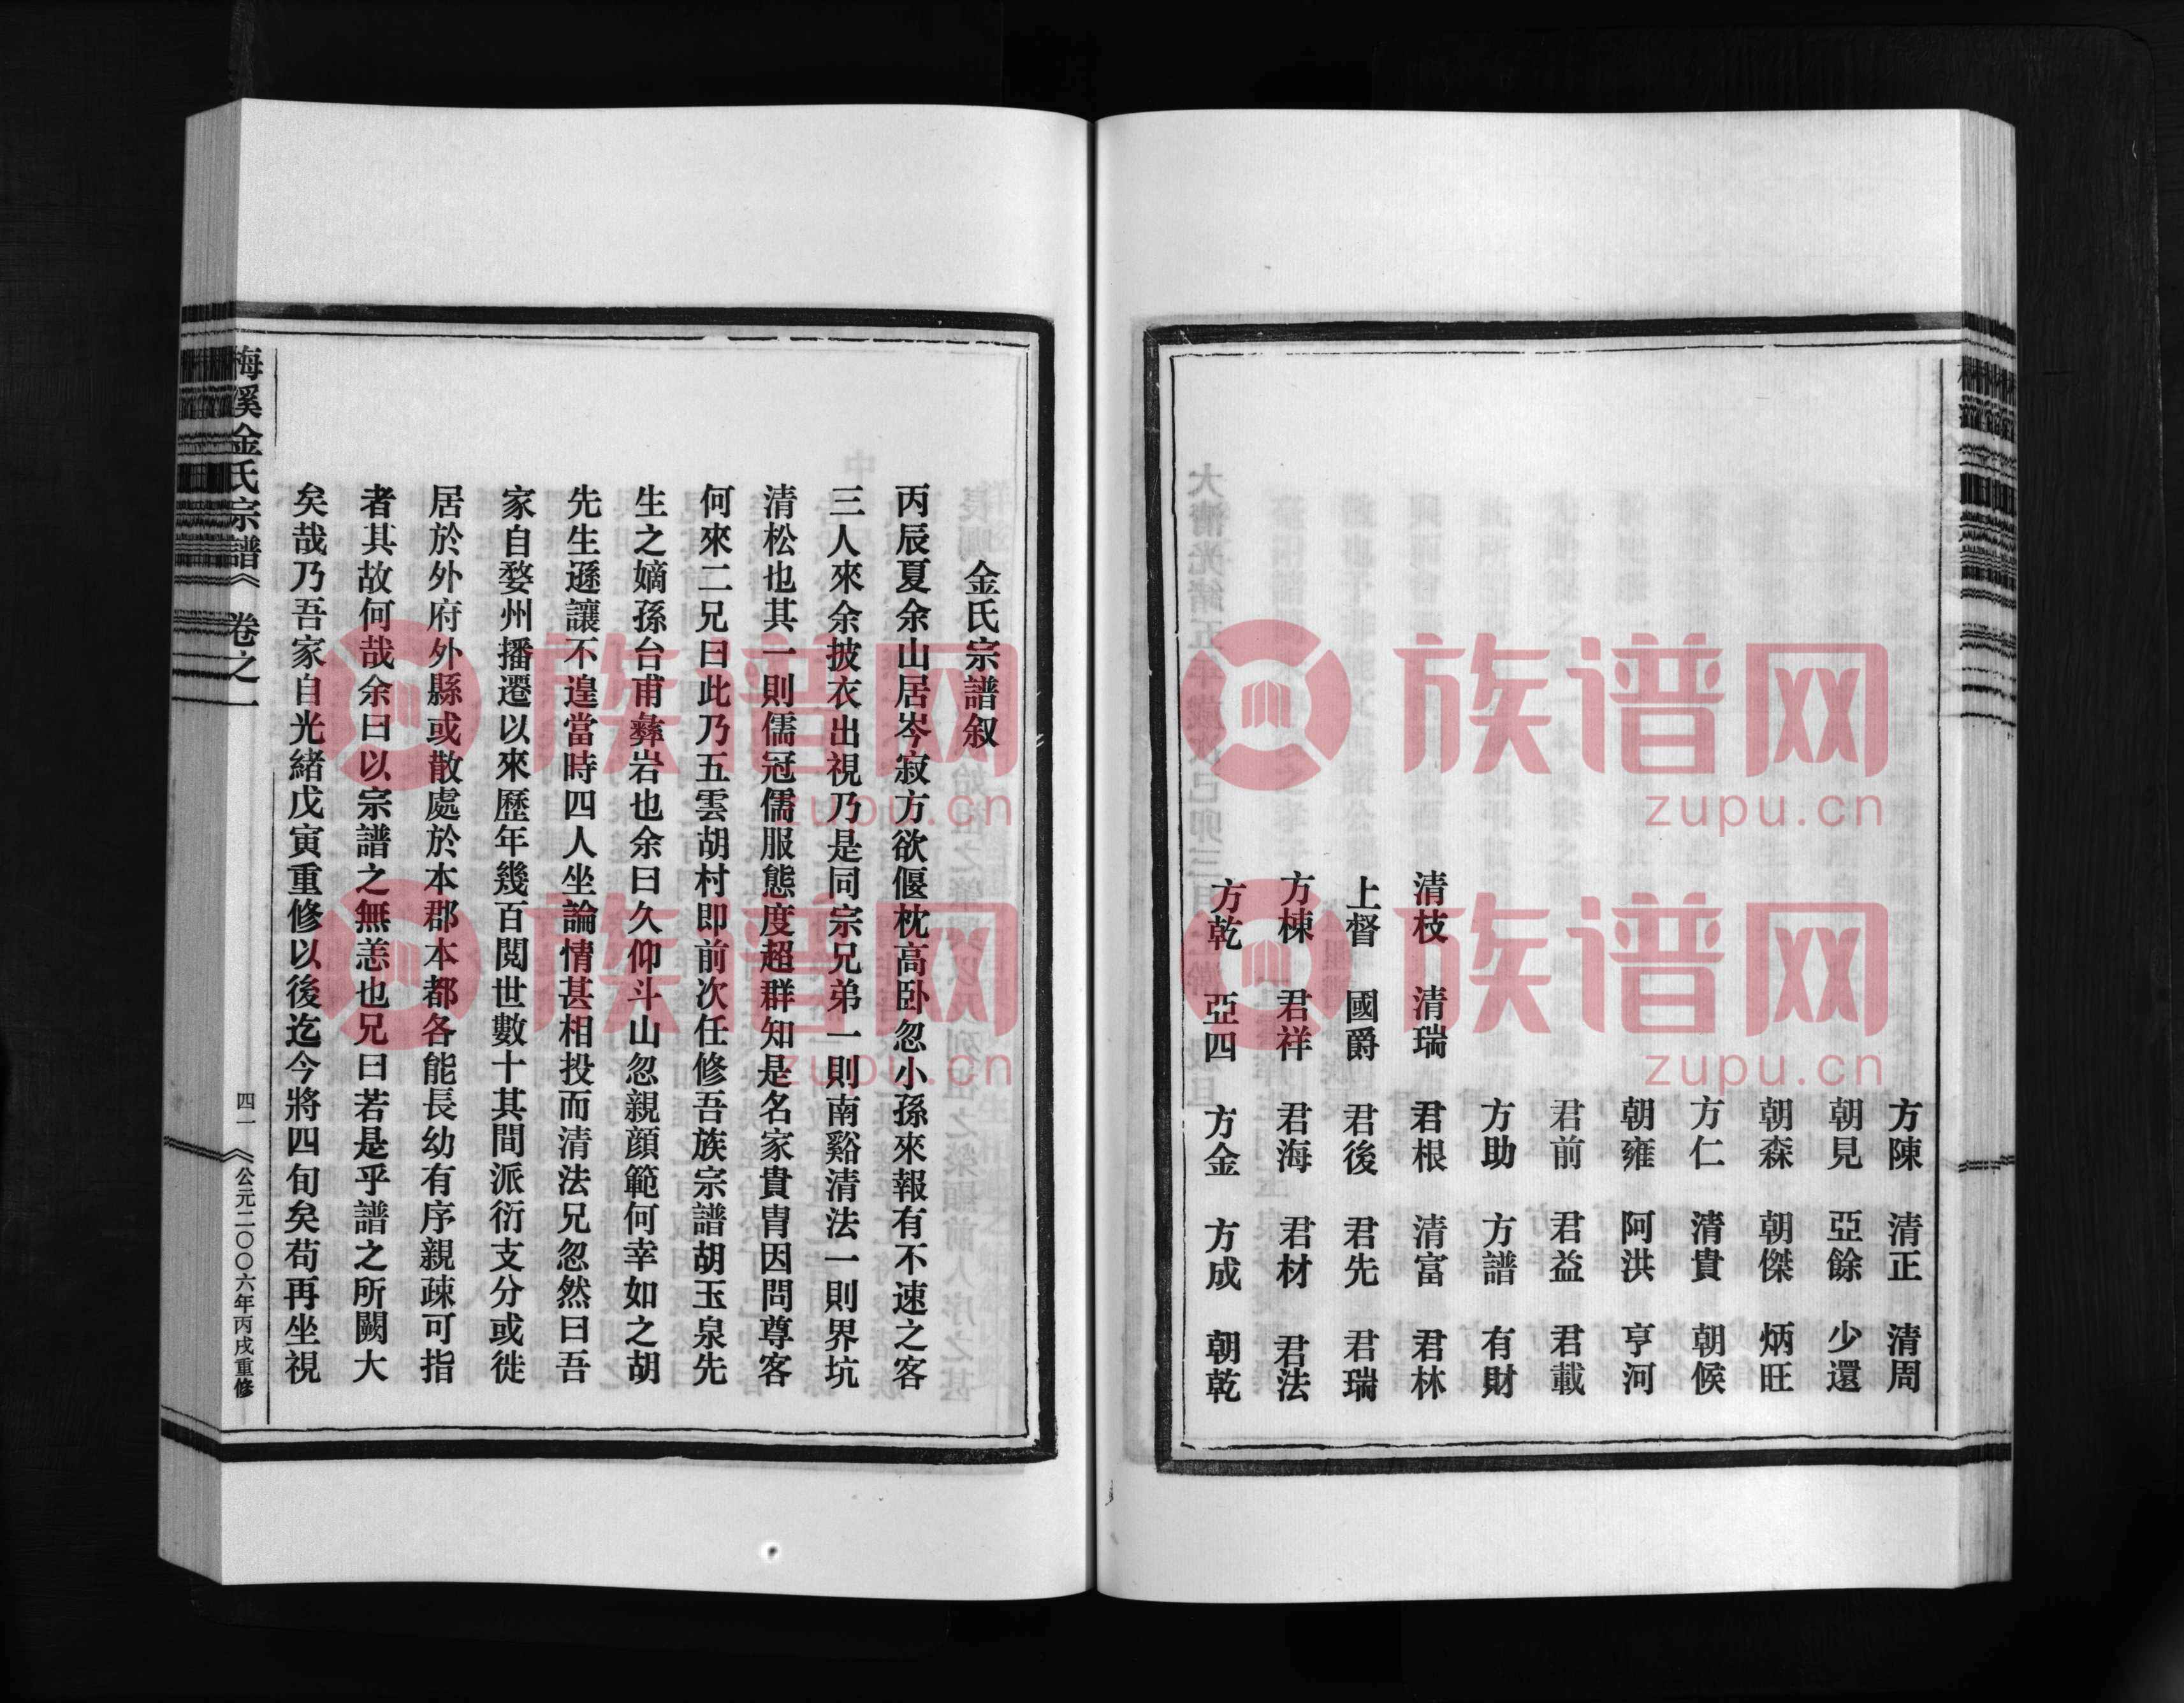 方陳 清正 清周
朝見 亞餘 少還
朝森 朝傑 炳旺
方仁 清貴 朝候
朝雍 阿洪 亨河
君前 君益 君載
方助 方譜 有財
清枝 清瑞 君根 清富 君林
上督 國爵 君後 君先 君瑞
方棟 君祥 君海 君材 君法
方乾 亞四 方金 方成 朝乾
金氏宗譜叙
丙辰夏余山居岑寂方欲偃枕高卧忽小孫來報有不速之客
三人來余披衣出視乃是同宗兄弟一則南谿清法一則界坑
清松也其一則儒冠儒服態度超群知是名家貴胄因問尊客
何來二兄曰此乃五雲胡村即前次任修吾族宗譜胡玉泉先
生之嫡孫台甫彝岩也余曰久仰斗山忽親顔範何幸如之胡
先生遜讓不遑當時四人坐論情甚相投而清法兄忽然曰吾
家自婺州播遷以來歷年幾百閲世數十其間派衍支分或徙
居於外府外縣或散處於本郡本都各能長幼有序親疎可指
者其故何哉余曰以宗譜之無恙也兄曰若是乎譜之所闕大
矣哉乃吾家自光緒戊寅重修以後迄今將四旬矣苟再坐視
梅溪金氏宗譜《 卷之一 四一 《公元二〇〇六年丙戌重修
族谱网
zupu.cn
族谱网
zupu.cn
族谱网
zupu.cn
族谱网
zupu.cn